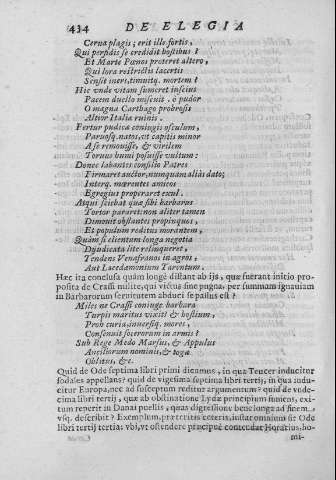 434 DE ELEGIA
Cerua plagis; erit ille fortis,
Qui perfidis se credidit hostibus?
Et Marte Pœnos proteret altero,
Qui lora restrictis lacertis
Sensit iners, timuitq. mortem?
Hic vnde vitam sumeret inscius
Pacem duello miscuit. ô pudor
O magna Carthago probrosis
Altior Italiæ ruinis.
Fertur pudicæ coniugis osculum,
Paruosq. natos, vt capitis minor
A se remouisse, & virilem
Toruus humi posuisse vultum:
Donec labantes consilio Patres
Firmaret auctor, nunquam aliàs dato;
Interq. mœrentes amicos
Egregius properaret exul.
Atqui sciebat quæ sibi barbarus
Tortor pararet: non aliter tamen
Dimouit obstantes propinquos,
Et populum reditus morantem,
Quàm si clientum longa negotia
Dijudicata lite relinqueret,
Tendens Venafranos in agros,
Aut Lacedæmonium Tarentum.
Hæc ita conclusa quàm longè distant ab ijs, quæ fuerant initio pro-
posita de Crassi milite, qui victus sine pugna, per summam ignauiam
in Barbarorum seruitutem abduci se passus est?
Miles ne Crassi coniuge barbara
Turpis maritus vixit? & hostium,
Proh curia, inuersiq. mores,
Consenuit socerorum in armis?
Sub Rege Medo Marsus, & Appulus
Anciliorum nominis, & togæ
Oblitus, &c.
Quid de Ode septima libri primi dicamus, in qua Teucer inducitur
sodales appellans? quid de vigesima septima libri tertij, in qua indu-
citur Europa, nec ad susceptum reditur argumentum? quid de vnde-
cima libri tertij, quæ ab obstinatione Lydæ principium sumens, exi-
tum reperit in Danai puellis, quas digressione bene longa ad finem
vsq. describit? Exemplum, præteritis ceteris, instar omnium sit Ode
libri tertij tertia; vbi, vt ostendere præcipuè contendat Horatius, ho-
mi-